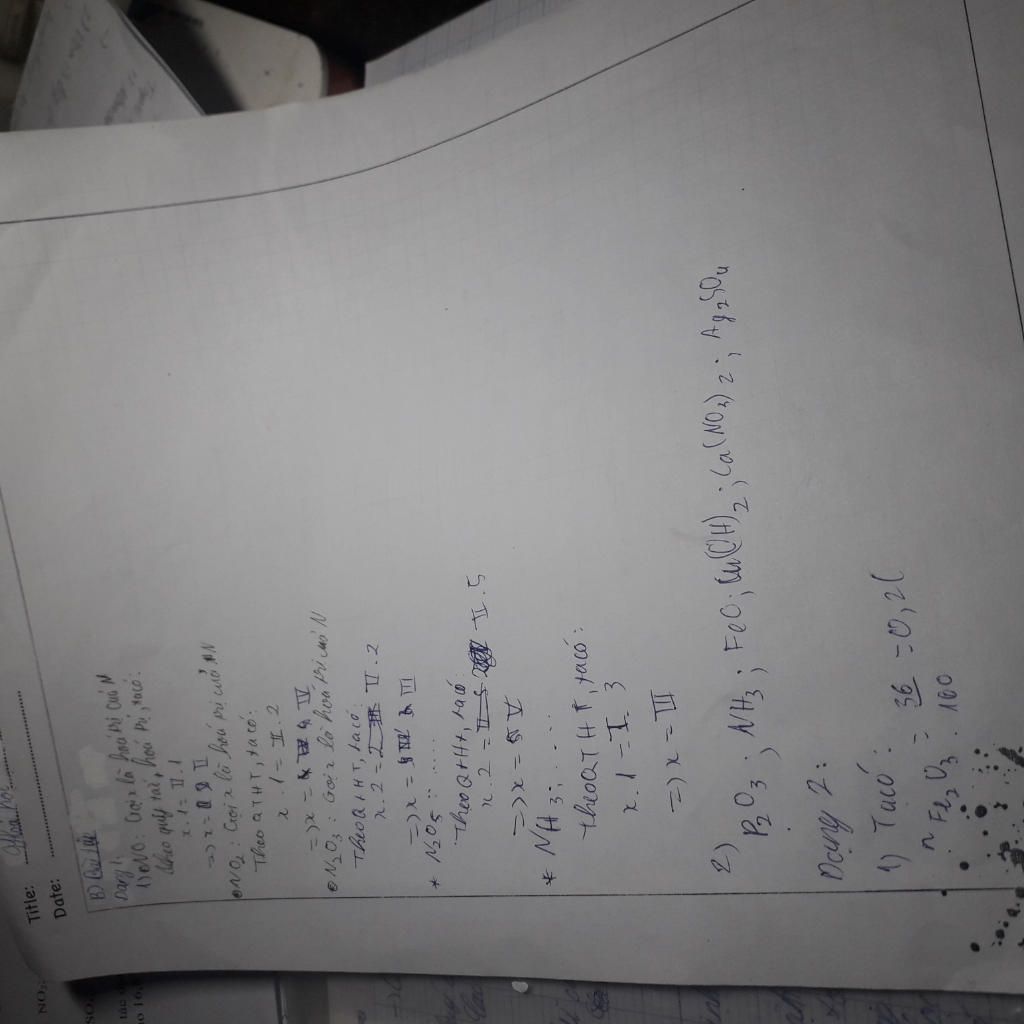 Title: Hoá học
Date:
B) Bài tập
Dạng 1:
1) • NO: Gọi x là hoá trị của N
theo quy tắc hoá trị, ta có:
x.1 = II.1
=> x = II
• NO2: Gọi x là hoá trị của N
Theo QTHT, ta có:
x.1 = II.2
=> x = IV
• N2O3: Gọi x là hoá trị của N
Theo QTHT, ta có:
x.2 = II.2
=> x = III
* N2O5: .....
Theo QTHT, ta có:
x.2 = II.5
=> x = V
* NH3: ....
Theo QTHT, ta có:
x.1 = I.3
=> x = III
2) P2O3; NH3; FeO; Cu(OH)2; Ca(NO3)2; Ag2SO4
Dạng 2:
1) Ta có:
n Fe2O3 = 36/160 = 0,2(